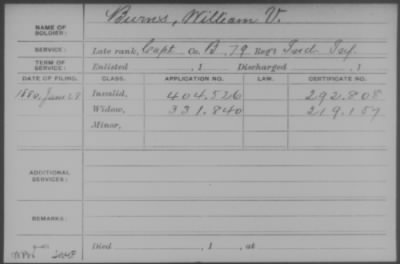 NAME OF SOLDIER: Burns, William V.
SERVICE: Late rank, Capt. Co. B, 79 Reg't Ind. Inf.
TERM OF SERVICE: Enlisted , 1 Discharged , 1
DATE OF FILING. CLASS. APPLICATION NO. LAW. CERTIFICATE NO.
1880, June 28 Invalid, 404.526 292.808
Widow, 331.840 219.157
Minor,
ADDITIONAL SERVICES:
REMARKS:
Died , 1 , at